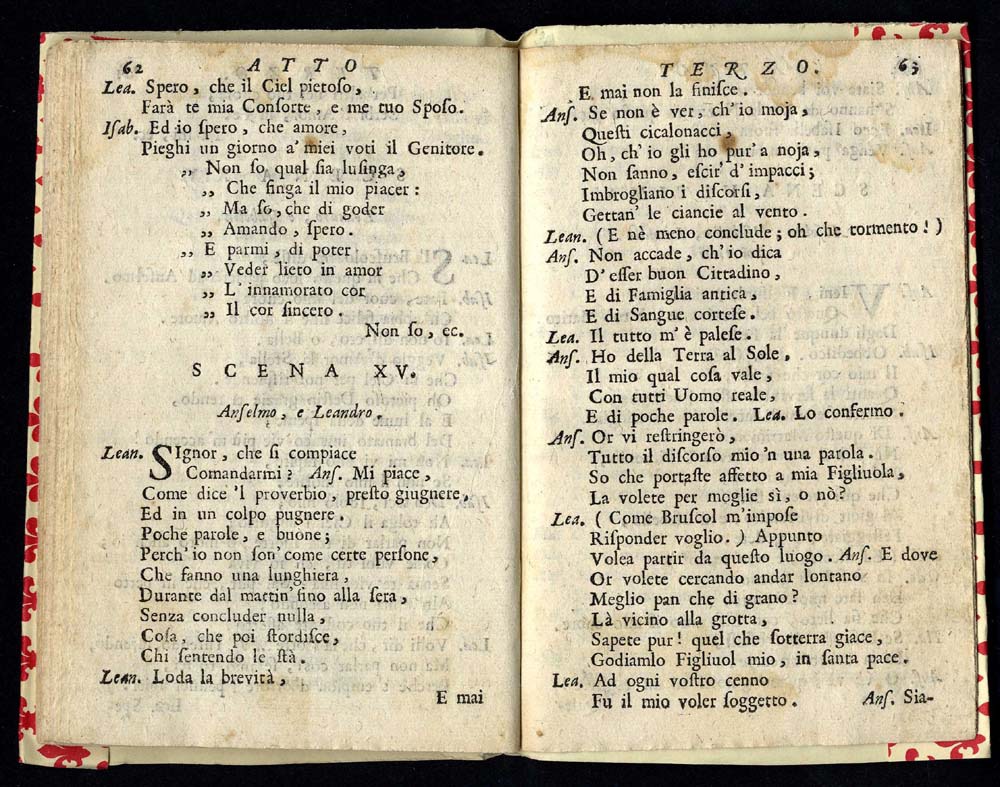 62 ATTO
Lea. Spero, che il Ciel pietoſo,
Farà te mia Conſorte, e me tuo Spoſo.
Iſab. Ed io ſpero, che amore,
Pieghi un giorno a' miei voti il Genitore.
„ Non ſo qual ſia luſinga,
„ Che finga il mio piacer:
„ Ma ſo, che di goder
„ Amando, ſpero.
„ E parmi, di poter
„ Veder lieto in amor
„ L' innamorato cor
„ Il cor ſincero.
Non ſo, ec.
SCENA XV.
Anſelmo, e Leandro.
Lean. SIgnor, che ſi compiace
Comandarmi? Anſ. Mi piace,
Come dice 'l proverbio, preſto giugnere,
Ed in un colpo pugnere.
Poche parole, e buone;
Perch' io non ſon' come certe perſone,
Che fanno una lunghiera,
Durante dal mattin' ſino alla ſera,
Senza concluder nulla,
Coſa, che poi ſtordiſce,
Chi ſentendo le ſtà.
Lean. Loda la brevità,
E mai
TERZO. 63
E mai non la finiſce.
Anſ. Se non è ver, ch' io moja,
Queſti cicalonacci,
Oh, ch' io gli ho pur' a noja,
Non ſanno, eſcir' d' impacci;
Imbrogliano i diſcorſi,
Gettan' le ciancie al vento.
Lean. ( E nè meno conclude; oh che tormento! )
Anſ. Non accade, ch' io dica
D' eſſer buon Cittadino,
E di Famiglia antica,
E di Sangue corteſe.
Lea. Il tutto m' è paleſe.
Anſ. Ho della Terra al Sole,
Il mio qual coſa vale,
Con tutti Uomo reale,
E di poche parole. Lea. Lo confermo.
Anſ. Or vi reſtringerò,
Tutto il diſcorſo mio 'n una parola.
So che portaſte affetto a mia Figliuola,
La volete per moglie sì, o nò?
Lea. ( Come Bruſcol m'impoſe
Riſponder voglio. ) Appunto
Volea partir da queſto luogo. Anſ. E dove
Or volete cercando andar lontano
Meglio pan che di grano?
Là vicino alla grotta,
Sapete pur! quel che ſotterra giace,
Godiamlo Figliuol mio, in ſanta pace.
Lea. Ad ogni voſtro cenno
Fu il mio voler ſoggetto. Anſ. Sia-